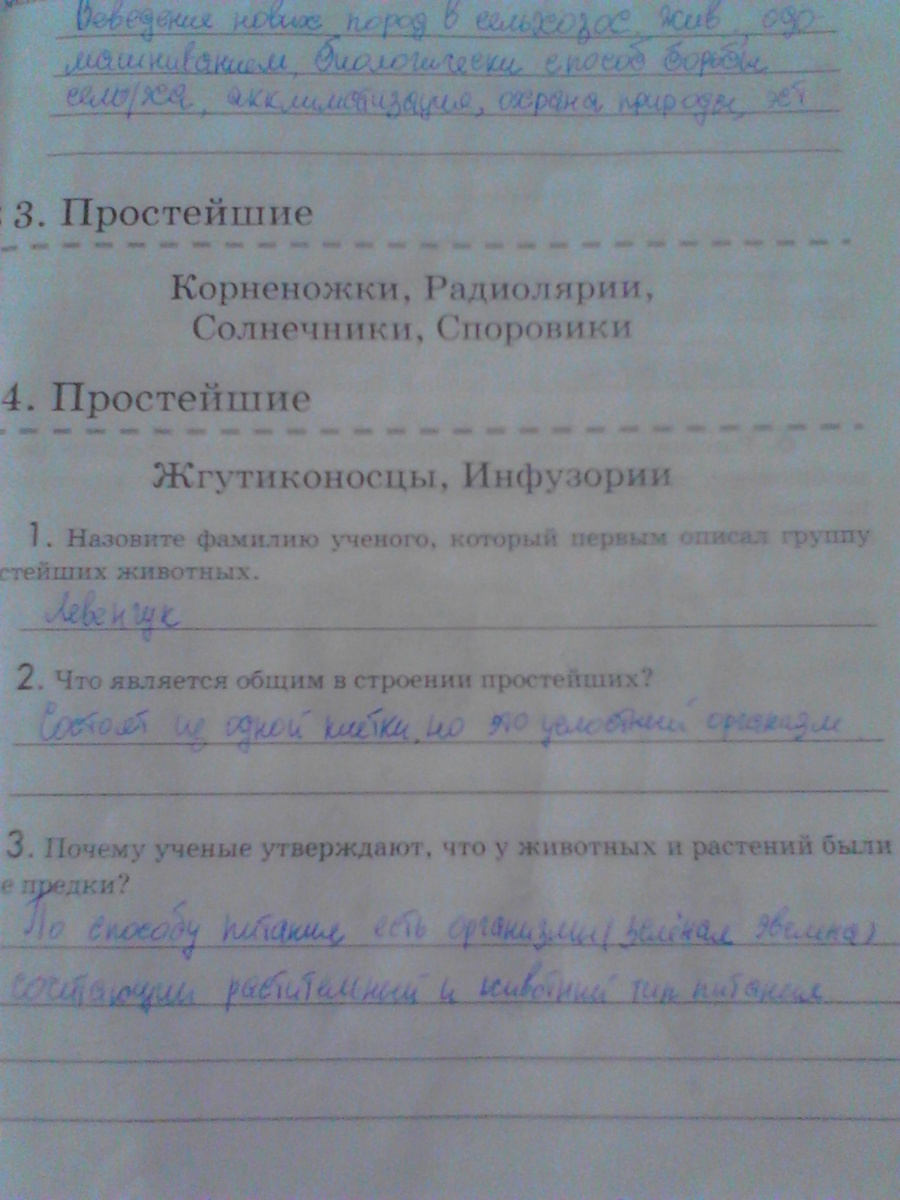 Веведение новых пород в сельхозос. жив., одо-
машниванием, биологически способ борьбы
сель/хоз, акклиматизация, охрана природы, эст
3. Простейшие
Корненожки, Радиолярии,
Солнечники, Споровики
4. Простейшие
Жгутиконосцы, Инфузории
1. Назовите фамилию ученого, который первым описал группу
стейших животных.
Левенгук
2. Что является общим в строении простейших?
Состоят из одной клетки, но это целостный организм
3. Почему ученые утверждают, что у животных и растений были
е предки?
По способу питания есть организмы (зелёная эвглена)
сочетающии растительный и животный тип питания.